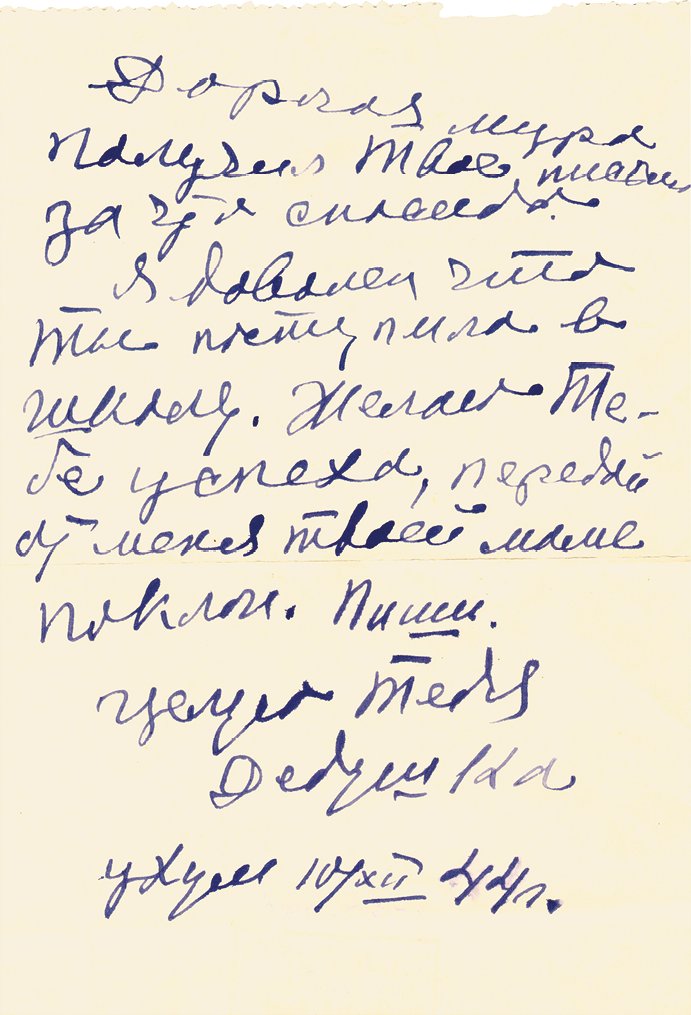 Дорогая мура
получил Твое письмо
за что спасибо.
Я доволен что
Ты поступила в
школу. Желаю Те-
бе успеха, передай
от меня твоей маме
поклон. Пиши.
целую Тебя
Дедушка
10/XII 44г.